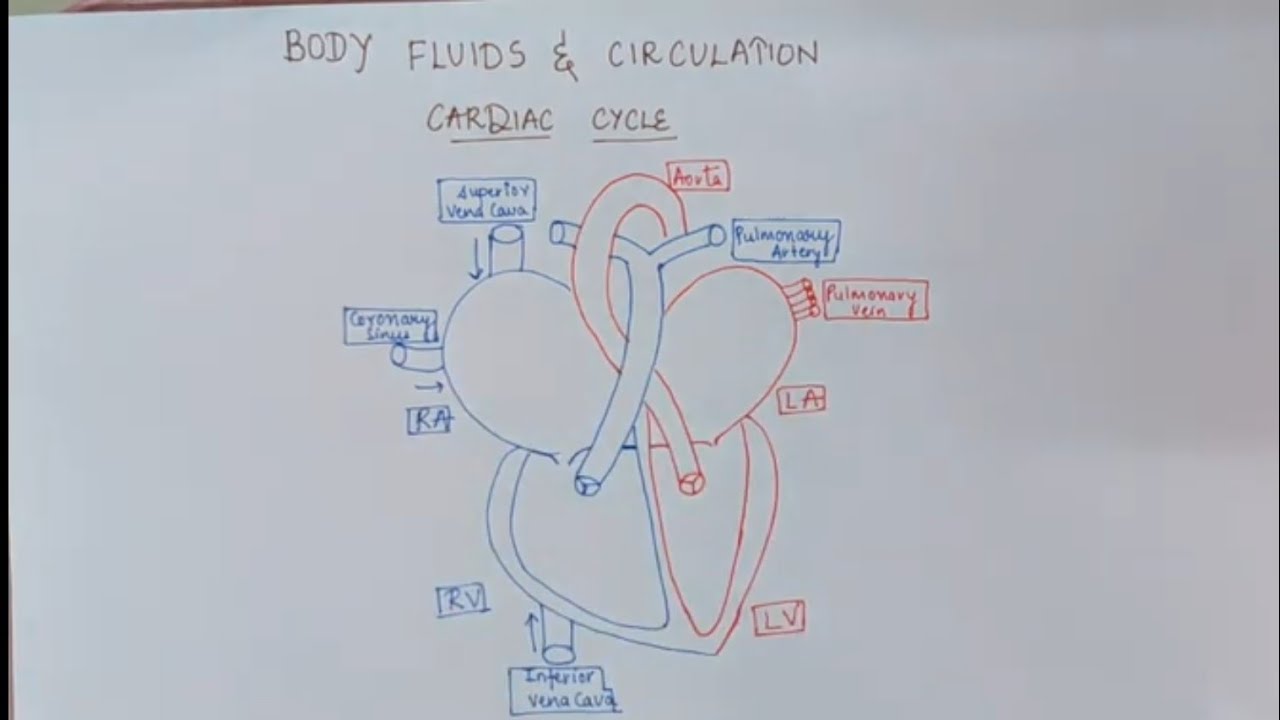 BODY FLUIDS & CIRCULATION
CARDIAC CYCLE
Aorta
Superior
Vena Cava
Pulmonary
Artery
Pulmonary
Vein
Coronary
Sinus
LA
RA
RV
LV
Inferior
Vena Cava